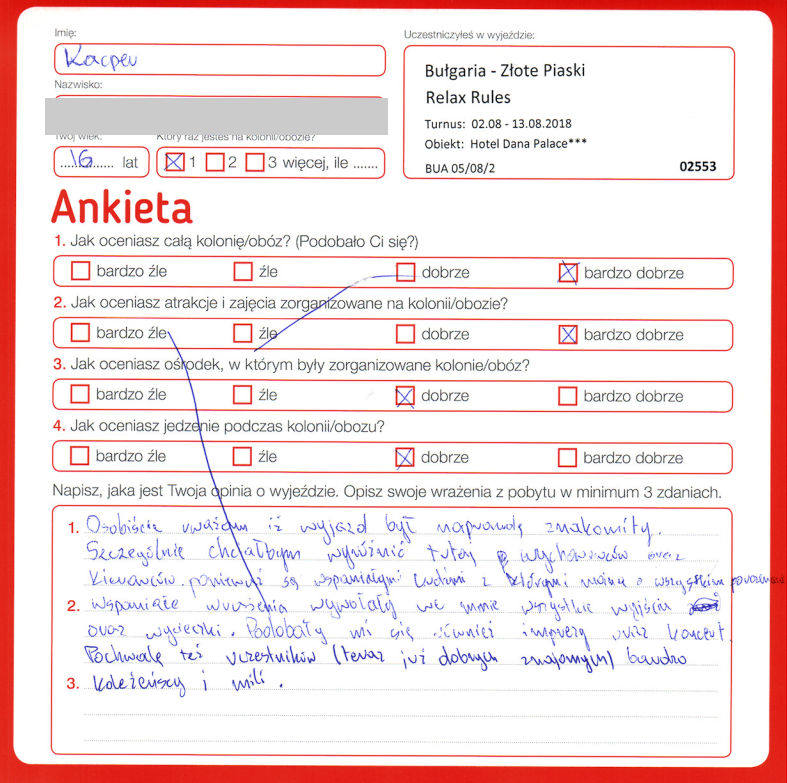 Imię:
Kacper
Nazwisko:
Twój wiek:
Który raz jesteś na kolonii/obozie?
16 lat
1 2 3 więcej, ile .......
Uczestniczyłeś w wyjeździe:
Bułgaria - Złote Piaski
Relax Rules
Turnus: 02.08 - 13.08.2018
Obiekt: Hotel Dana Palace***
BUA 05/08/2 02553
Ankieta
1. Jak oceniasz całą kolonię/obóz? (Podobało Ci się?)
bardzo źle źle dobrze bardzo dobrze
2. Jak oceniasz atrakcje i zajęcia zorganizowane na kolonii/obozie?
bardzo źle źle dobrze bardzo dobrze
3. Jak oceniasz ośrodek, w którym były zorganizowane kolonie/obóz?
bardzo źle źle dobrze bardzo dobrze
4. Jak oceniasz jedzenie podczas kolonii/obozu?
bardzo źle źle dobrze bardzo dobrze
Napisz, jaka jest Twoja opinia o wyjeździe. Opisz swoje wrażenia z pobytu w minimum 3 zdaniach.
1. Osobiście uważam iż wyjazd był naprawdę znakomity.
Szczególnie chciałbym wyróżnić tutaj wychowawców oraz
kierowców, ponieważ są wspaniałymi ludźmi z którymi można o wszystkim porozmawiać
2. Wspaniałe wrażenia wywołały we mnie wszystkie wyjścia
oraz wycieczki. Podobały mi się również imprezy oraz koncert.
Pochwalę też uczestników (teraz już dobrych znajomych) bardzo
3. koleżeńscy i mili.